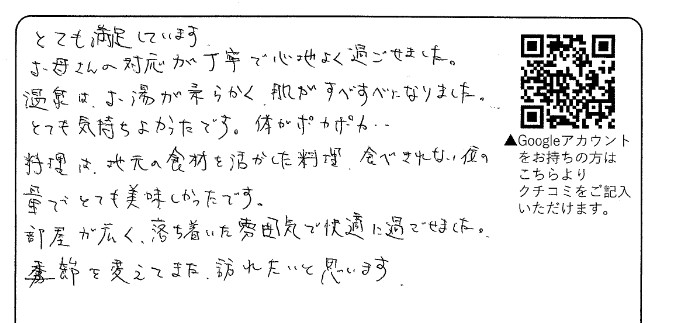 とても満足しています
お母さんの対応が丁寧で心地よく過ごせました。
温泉は、お湯が柔らかく、肌がすべすべになりました。
とても気持ちよかったです。体がポカポカ‥
料理は、地元の食材を活かした料理、食べきれない位の
量でとても美味しかったです。
部屋が広く、落ち着いた雰囲気で快適に過ごせました。
季節を変えてまた、訪れたいと思います。
▲Googleアカウント
をお持ちの方は
こちらより
クチコミをご記入
いただけます。